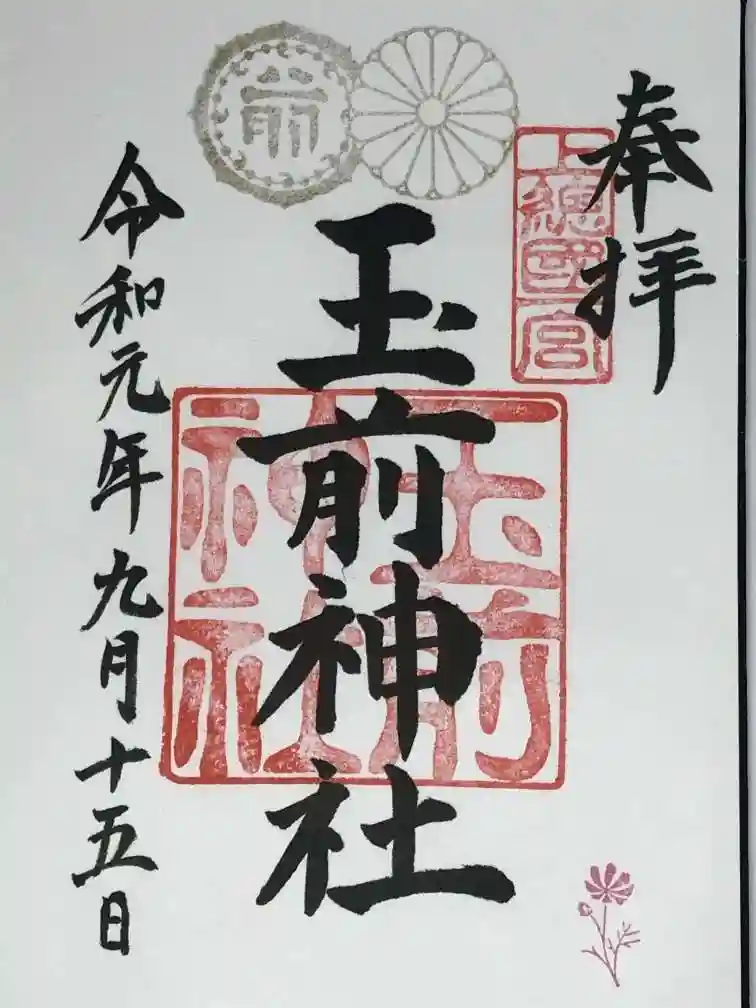 奉拝
上總國一宮
玉前神社
玉前神社
令和元年九月十五日
前